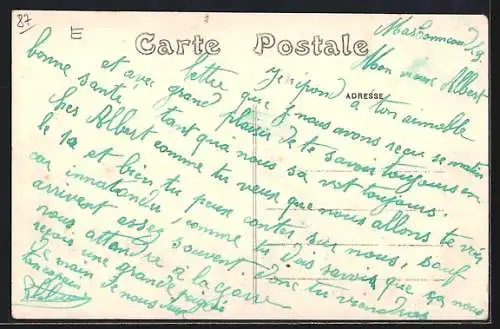 87
E
Carte Postale
ADRESSE
Mon vieux Albert
Je répond à ton aimable
lettre que nous avons reçu se matin
et avec grand plaisir de te savoir toujours en
bonne santé tant qua nous sa vat toujours.
cher Albert comme tu veux que nous allons te voir
le 12 et bien tu peux conter sur nous, sauf
car innatandu, comme tu dois savoir que sa nous
arrivent assez souvent. Donc tu viendras
nous attendre à la gare
reçois une grande
de main
ton copain